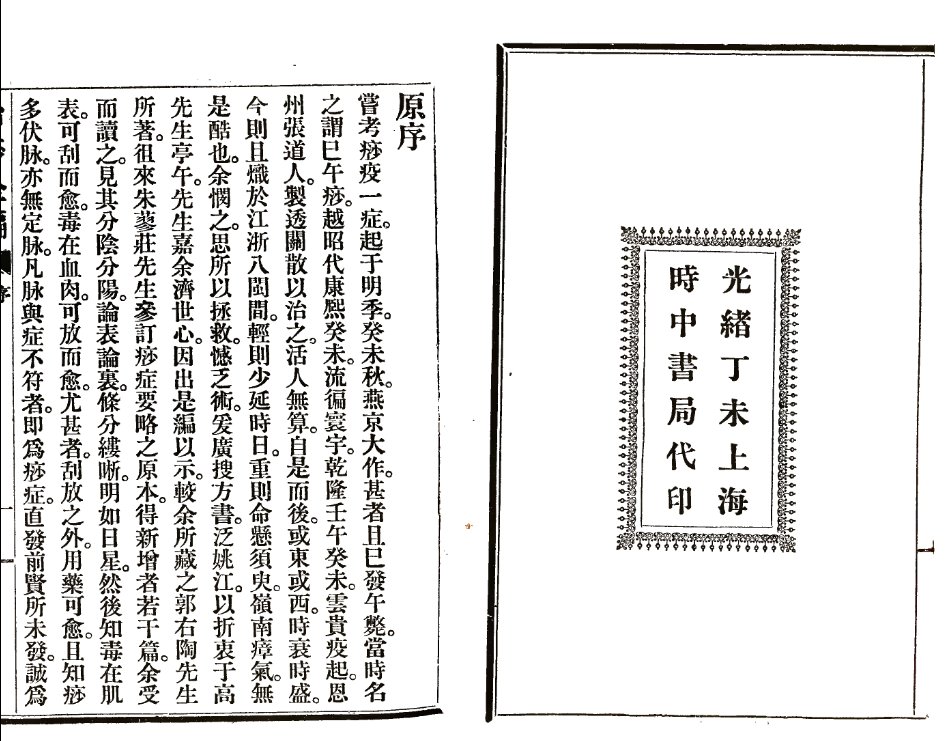 光緒丁未上海
時中書局代印
原序
嘗考痧疫一症。起于明季。癸未秋。燕京大作。甚者且巳發午斃。當時名
之謂巳午痧。越昭代康熙癸未。流徧寰宇。乾隆壬午癸未。雲貴疫起。恩
州張道人。製透關散以治之。活人無算。自是而後。或東或西。時衰時盛。
今則且熾於江浙八閩間。輕則少延時日。重則命懸須臾。嶺南瘴氣。無
是酷也。余憫之。思所以拯救。憾乏術。爰廣搜方書。泛姚江。以折衷于高
先生亭午。先生嘉余濟世心。因出是編以示。較余所藏之郭右陶先生
所著。徂來朱蓼莊先生參訂痧症要略之原本。得新增者若干篇。余受
而讀之。見其分陰分陽。論表論裏。條分縷晰。明如日星。然後知毒在肌
表。可刮而愈。毒在血肉。可放而愈。尤甚者。刮放之外。用藥可愈。且知痧
多伏脉。亦無定脉。凡脉與症不符者。即爲痧症。直發前賢所未發。誠爲
序